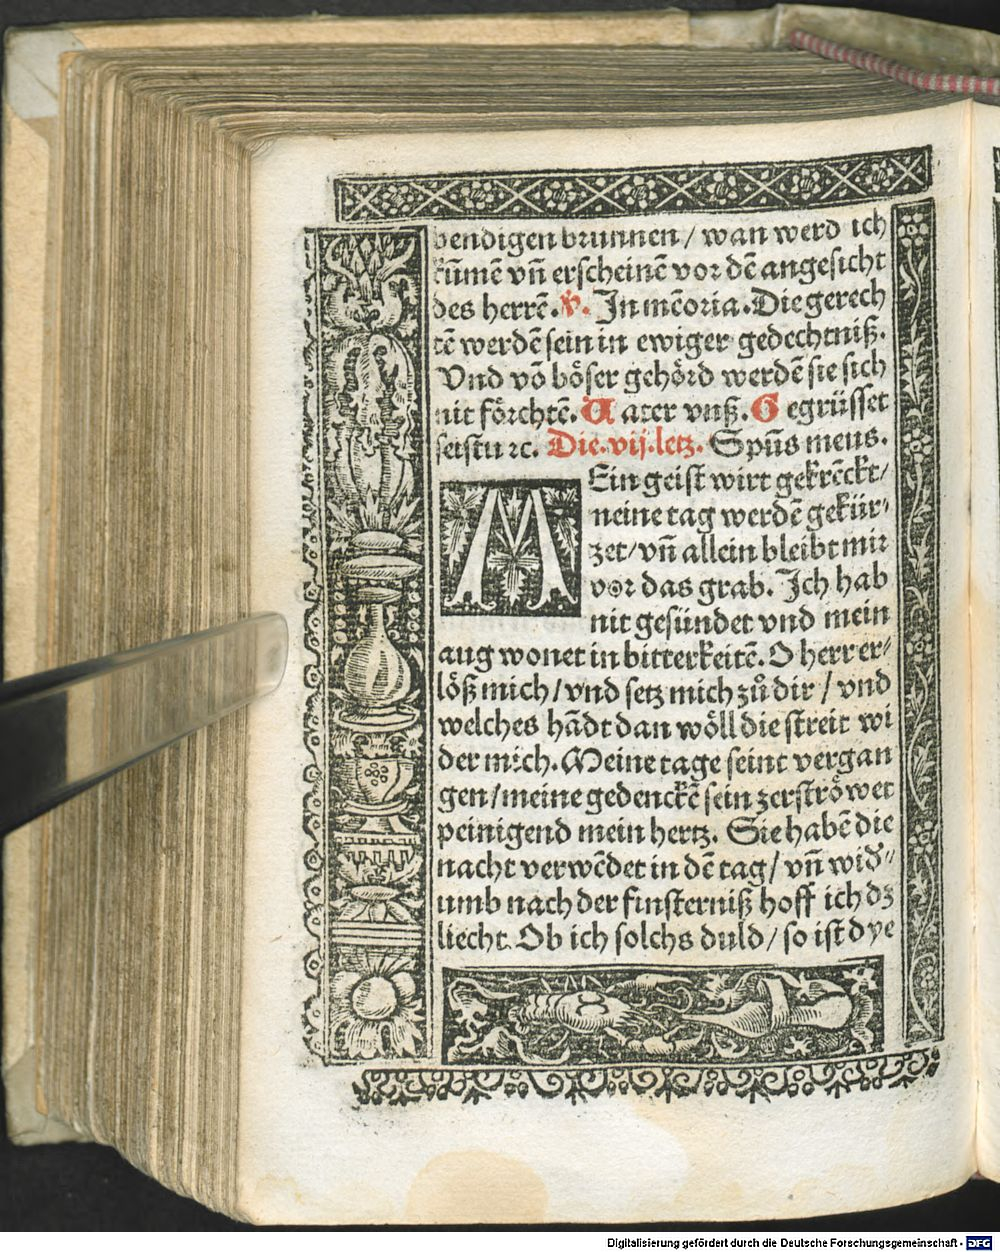 bendigen brunnen / wan werd ich
kūmē vn̄ erscheinē vor dē angesicht
des herrē. ℣. In mēoria. Die gerech
tē werdē sein in ewiger gedechtniß.
Vnd vō böser gehörd werdē sie sich
nit förchtē. Vater vnß. Gegrüsset
seistu ⁊c. Die .vij. letz. Spūs meus.
MEin geist wirt gekrēckt/
meine tag werdē gekür⸗
zet / vn̄ allein bleibt mir
vor das grab. Ich hab
nit gesündet vnd mein
aug wonet in bitterkeitē. O herr er⸗
löß mich / vnd setz mich zů dir / vnd
welches hādt dan wöll die streit wi
der mich. Meine tage seint vergan
gen / meine gedenckē sein zerströwet
peinigend mein hertz. Sie habē die
nacht verwēdet in dē tag / vn̄ wid⸗
umb nach der finsterniß hoff ich dz
liecht. Ob ich solchs duld / so ist dye
Digitalisierung gefördert durch die Deutsche Forschungsgemeinschaft - DFG